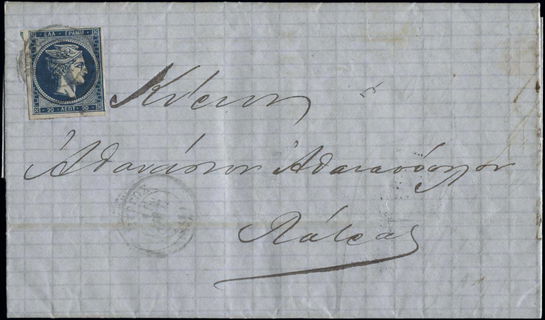 ΕΛΛ. ΓΡΑΜΜ.
20 ΛΕΠΤ. 20
Κύριον
Αθανάσιον Αθανασόπουλον
Πάτρας